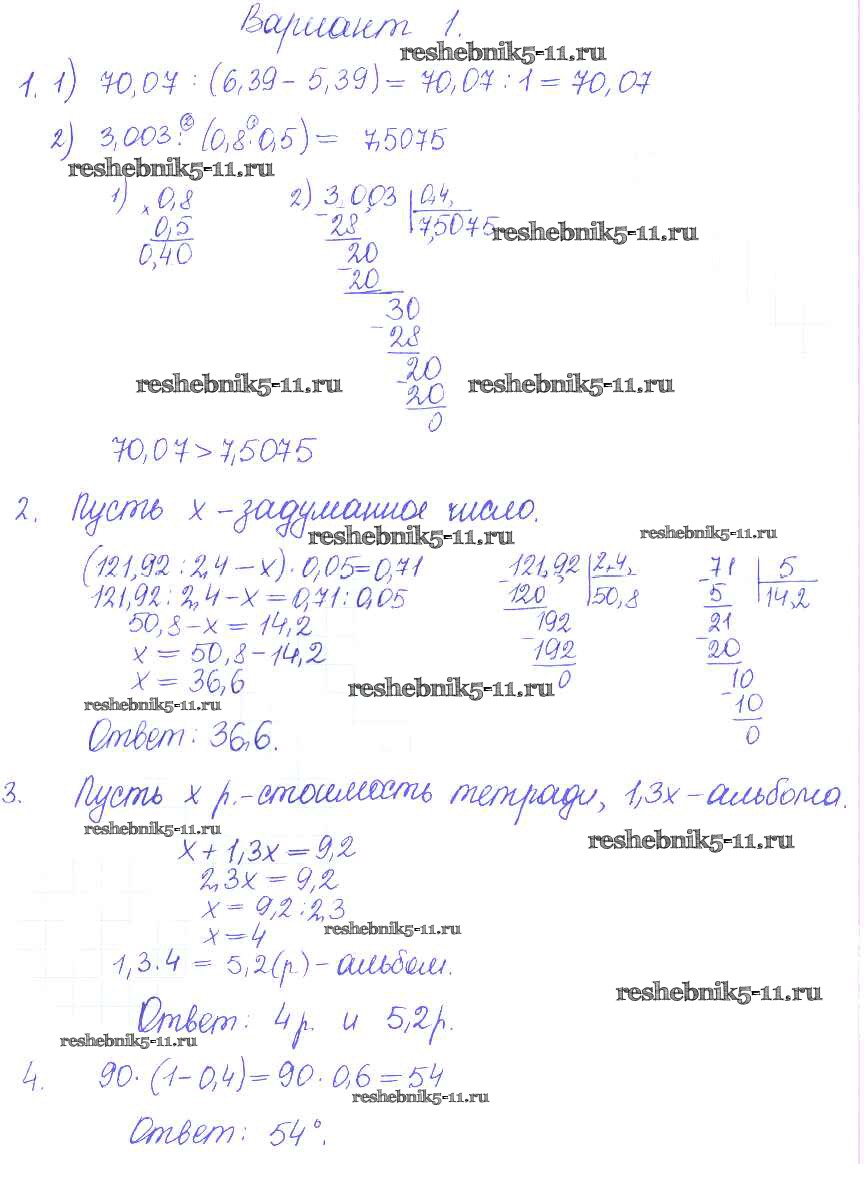 Вариант 1.
reshebnik5-11.ru
1. 1) 70,07 : (6,39 - 5,39) = 70,07 : 1 = 70,07
2) 3,003 :② (0,8 ·① 0,5) = 7,5075
reshebnik5-11.ru
1) × 0,8 2) 3,003 | 0,4,
0,5 - 28 7,5075
reshebnik5-11.ru
0,40 20
- 20
30
- 28
reshebnik5-11.ru 20 reshebnik5-11.ru
- 20
0
70,07 > 7,5075
2. Пусть x - задуманное число.
reshebnik5-11.ru reshebnik5-11.ru
(121,92 : 2,4 - x) · 0,05 = 0,71 - 121,92 | 2,4, - 71 | 5
121,92 : 2,4 - x = 0,71 : 0,05 120 50,8 5 14,2
50,8 - x = 14,2 192 21
x = 50,8 - 14,2 - 192 - 20
x = 36,6 0 10
reshebnik5-11.ru reshebnik5-11.ru - 10
Ответ: 36,6. 0
3. Пусть x р. - стоимость тетради, 1,3x - альбома.
reshebnik5-11.ru reshebnik5-11.ru
x + 1,3x = 9,2
2,3x = 9,2
x = 9,2 : 2,3
reshebnik5-11.ru
x = 4
1,3 · 4 = 5,2 (р) - альбом.
reshebnik5-11.ru
Ответ: 4 р. и 5,2 р.
reshebnik5-11.ru
4. 90 · (1 - 0,4) = 90 · 0,6 = 54
reshebnik5-11.ru
Ответ: 54°.